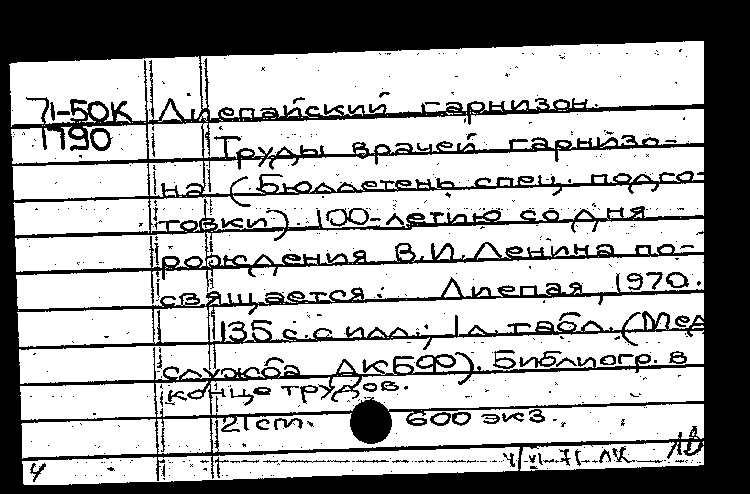 71-50К Лиепайский гарнизон.
1790 Труды врачей гарнизо-
на (Бюллетень спец. подго-
товки). 100-летию со дня
рождения В.И. Ленина по-
свящается. Лиепая, 1970.
135 с. с илл.; 1 л. табл. (Мед
служба ДКБФ). Библиогр. в
конце трудов.
21 cm. 600 экз.
4/VI-71 ЛК ЛВ
4